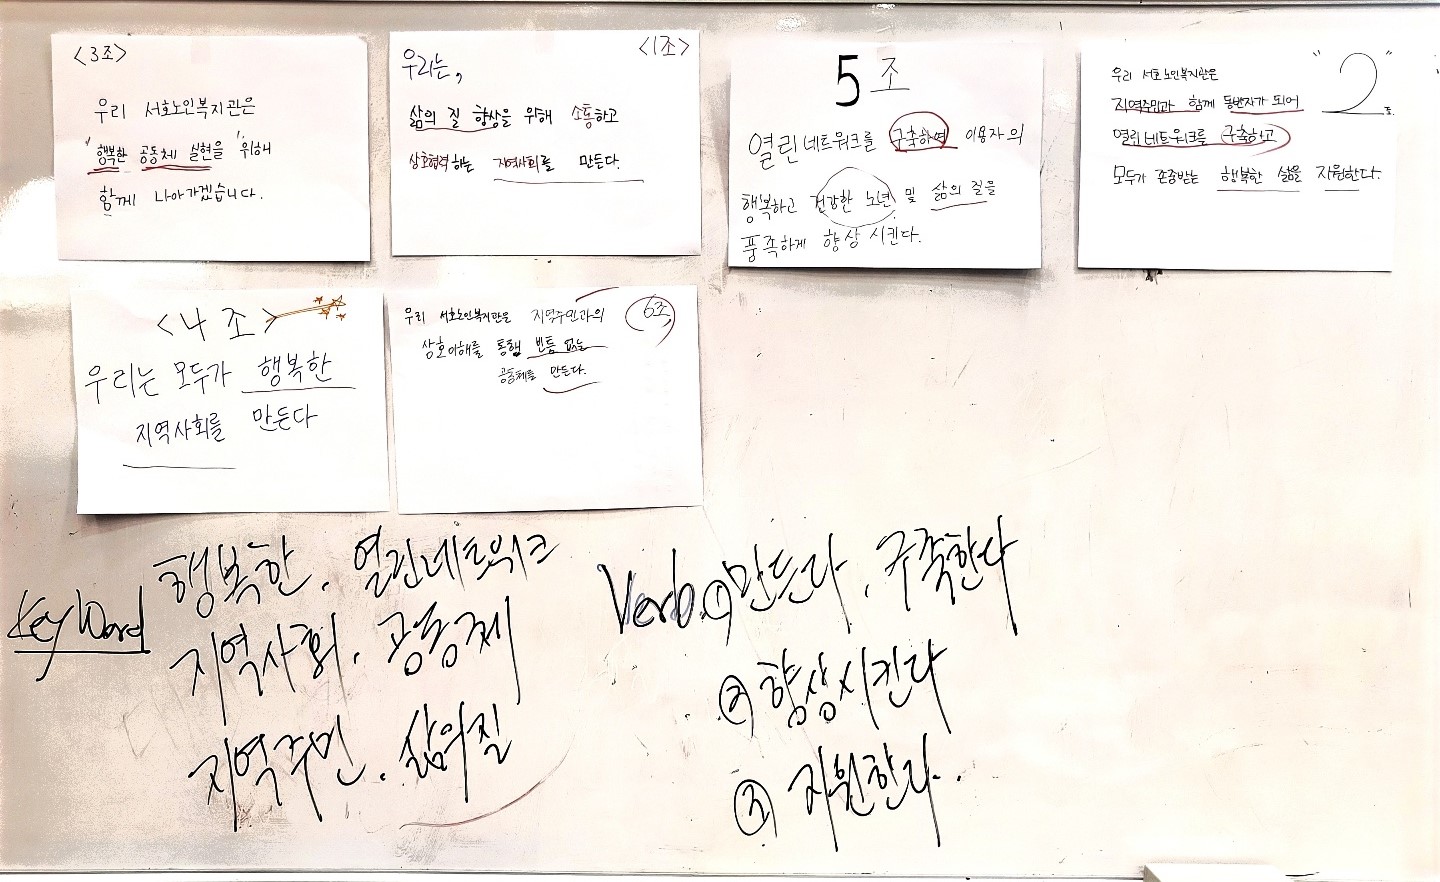 <3조>
우리 서호노인복지관은
"행복한 공동체 실현을" 위해
함께 나아가겠습니다.
<1조>
우리는,
삶의 질 향상을 위해 소통하고
상호협력하는 지역사회를 만든다.
5조
열린네트워크를 구축하여 이용자의
행복하고 건강한 노년 및 삶의 질을
풍족하게 향상 시킨다.
"2"조
우리 서호노인복지관은
지역주민과 함께 동반자가 되어
열린네트워크를 구축하고
모두가 존중받는 행복한 삶을 지원한다.
<4조>
우리는 모두가 행복한
지역사회를 만든다
6조
우리 서호노인복지관은 지역주민과의
상호이해를 통해 빈틈 없는
공동체를 만든다.
Key Word
행복한, 열린네트워크
지역사회, 공동체
지역주민, 삶의 질
Verb. ① 만든다, 구축한다
② 향상시킨다
③ 지원한다..